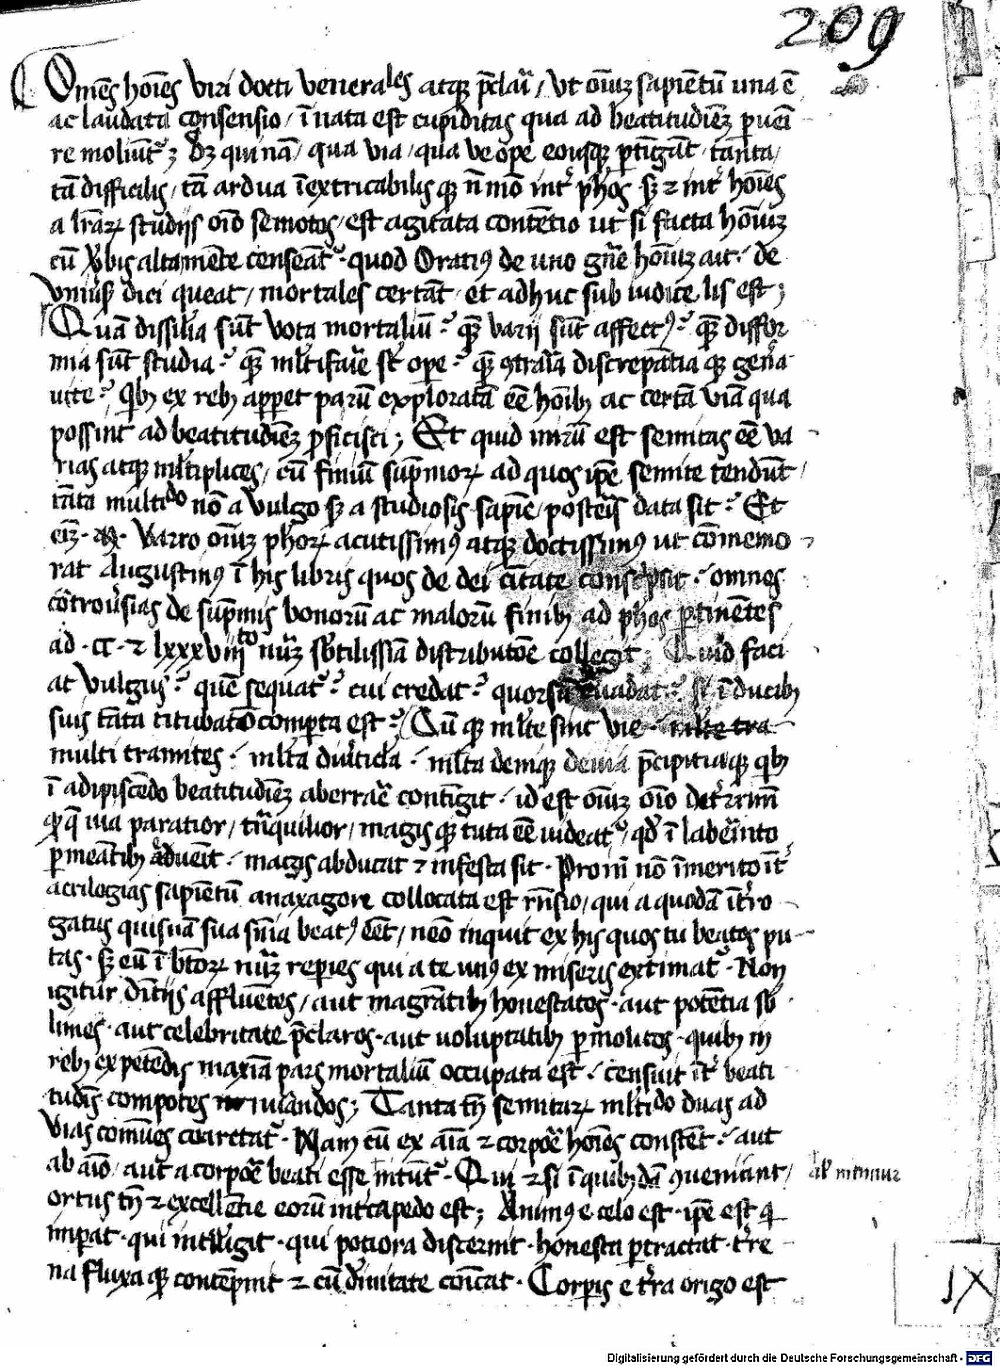 209
Om̄es hoīes viri docti venerales atqꝫ p̄clari / vt om̄iuꝫ sapiētū una ē
ac laudata consensio / ī nata est cupiditas qua ad beatitudīeꝫ ꝑueī
re moliūt᷑ꝫ Sꝫ qui nā / qua via / qua ve ope eousqꝫ ꝑtīgāt / tanta /
tā difficilis / tā ardua īextricabilisqꝫ nō mō int᷑ phōs sꝫ ⁊ int᷑ hoīes
a lr̄aꝝ studijs oīo semotos / est agitata contētio ut si facta hoīuꝫ
cū v̓bis alta mēte censeāt᷑ · quod Oratiꝰ de uno gn̄e hoīuꝫ ait · de
vniuˢis dici queat / mortales certāt · et adhuc sub iudice lis est ;
Quā dissilia sūt vota mortaliū ·᷑ qꝫ̄ varij sūt affectꝰ ·᷑ qꝫ̄ diffor
mia sūt studia ·᷑ qꝫ̄ ml̓tifarie st̄ ope ·᷑ qꝫ̄ ꝯtraria discrepātia qꝫ gen̓a
uite ·᷑ Qibꝫ ex rebꝫ apparet parū exploratā eē hoībꝫ ac certā viā qua
possint ad beatitudīeꝫ ꝓficisci ; Et quid mirū est semitas eē va
rias atqꝫ ml̓tiplices / cū finiū sup̄moꝝ ad quos ip̄e semite tendūt /
tāta multido nō a vulgo sꝫ a studiosis sapīe / posteris data sit ·᷑ Et
eīꝫ · M · Varro oīuꝫ phōꝝ acutissimꝰ atqꝫ doctissimꝰ ut cōmemo
rat Augustinꝰ ī his libris quos de dei ciuitate conscripsit · omnes
cōtrouˢias de sup̄mis bonorū ac malorū finibꝫ ad phōs ꝑtinētes
ad · CC · ⁊ lxxxviijto nūꝫ sb̓tilissīa distributōe collegit · Quid faci
at vulgus ·᷑ quē sequat᷑ ·᷑ cui credat ·᷑ quorsū euadat ·᷑ si ī ducibꝫ
suis tāta titubatō comperta est ·᷑ Cū qꝫ ml̓te sint vie ·
multi tramites · ml̓ta diuˢticla · ml̓ta deniqꝫ deuia p̄cipitiaqꝫ qibꝫ
ī adipiscēdo beatitudīeꝫ aberrare contigit · id est oīuꝫ oīo det᷑rimū
qꝫ q̄ uia paratior / trāquilior / magisqꝫ tuta eē uideat᷑ / qd̓ ī laberīto
ꝑmeātibꝫ aduēit · magis abducat ⁊ infesta sit · Proin̄ nō īmerito īt᷑
acrilogias sapiētū anaxagore collocata est rn̄sio / qui a quodā īt᷑ro
gatus quisnā sua sn̄ia beatꝰ eēt / nēo inquit ex his quos tu beatos pu
tas · sꝫ eū ī btōꝝ nūꝫ reperies qui a te unꝰ ex miseris extimat᷑ · Non
igitur diuitijs affluētes / aut magrātibꝫ honestatos · aut potētia sb
limes · aut celebritate p̄claros · aut uoluptatibꝫ ꝑmolitos · quibꝫ in
rebꝫ expetēdis maxīa pars mortaliū occupata est · censuit īt᷑ beati
tudīs compotes iuuandos ; Tanta tn̄ semitaꝝ ml̓tido duas ad
vias comūes coaretat᷑ · Nam cū ex aīa ⁊ corpoē hoīes constēt ·᷑ aut
ab aīo / aut a corpoē beati esse intūt᷑ · Qui ⁊ si ī quibꝫdā ꝯueniunt /
ortus tn̄ ⁊ excellētie eorū intˢcapedo est ; Animꝰ e celo est · ip̄e est qi
imperat · qui intelligit · qui potiora discernit · honesta ꝑtractat · t᷑re
na fluxa qꝫ contēpnit ⁊ cū diuinitate cōicat · Corpis e t᷑ra origo est
IX
Digitalisierung gefördert durch die Deutsche Forschungsgemeinschaft - DFG